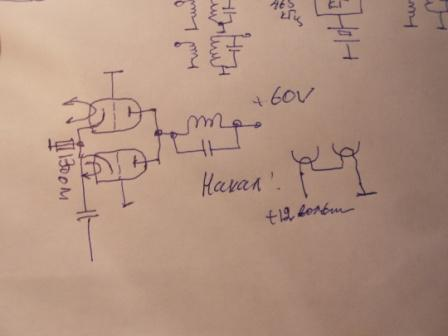 465
+60V
130 Ом
Накал:
+12 вольт